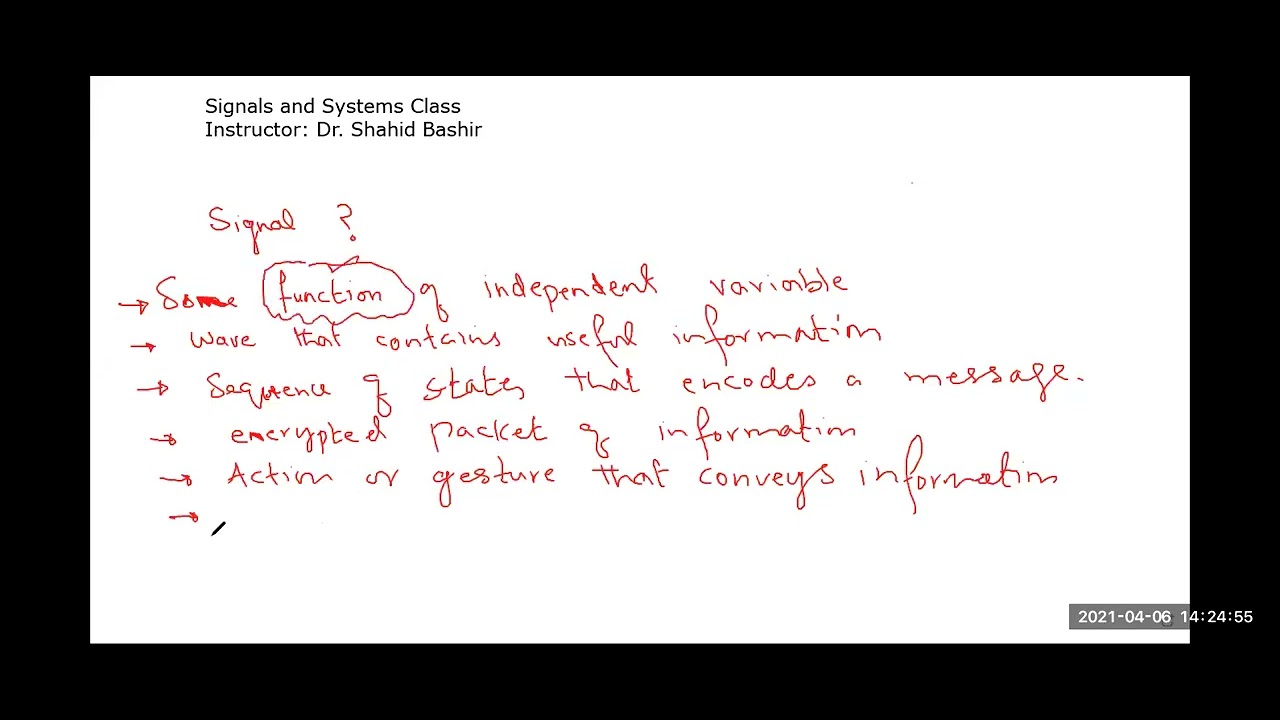 Signals and Systems Class
Instructor: Dr. Shahid Bashir
Signal ?
→ Some function of independent variable
→ wave that contains useful information
→ Sequence of states that encodes a message.
→ encrypted packet of information
→ Action or gesture that conveys information
→
2021-04-06 14:24:55